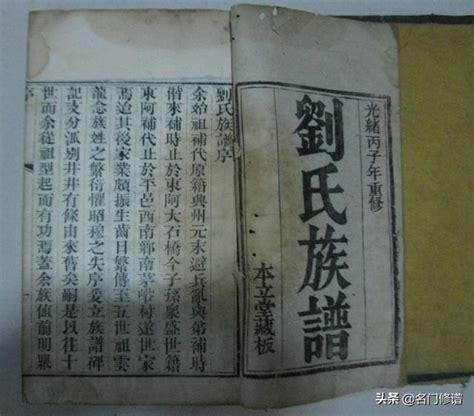 光緒丙子年重修
劉氏族譜
本立堂藏板
劉氏族譜序
余始祖補代原籍興州元末避兵亂與弟補時
偕來補時止於東阿大石橋今子孫衆盛世籍
東阿補代止於平邑西南鄣南茅 村遂世家
焉迨其後家業頗振生齒日繁傳至五世祖雲
龍念族姓之繁衍懼昭穆之失序爰立族譜碑
記支分派別井井有條由來舊矣嗣是以往十
世而余從祖型起而有功焉蓋余族值前明鼎
序
头条 @名门修谱